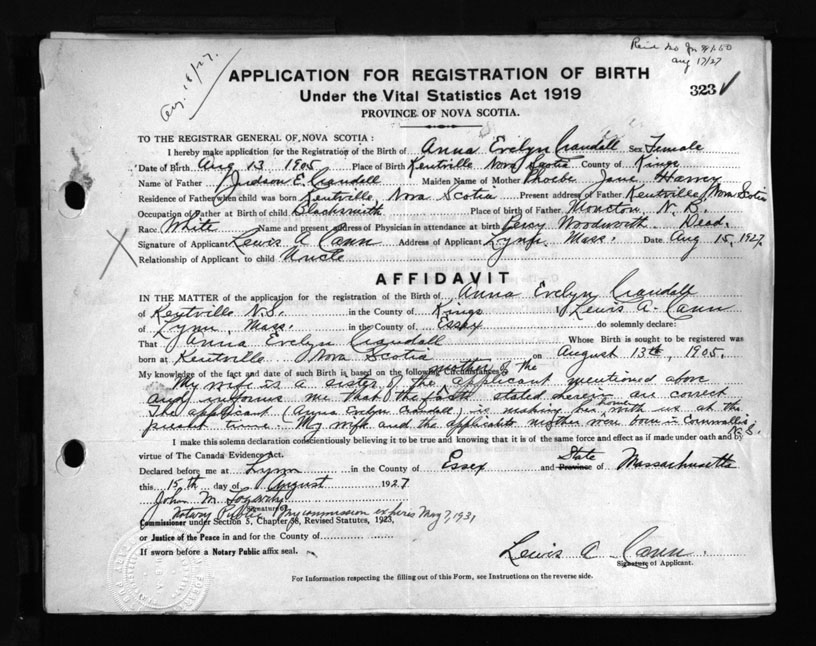 Aug. 18/27.
Aug 17/27
APPLICATION FOR REGISTRATION OF BIRTH
Under the Vital Statistics Act 1919
323
PROVINCE OF NOVA SCOTIA.
TO THE REGISTRAR GENERAL OF NOVA SCOTIA:
I hereby make application for the Registration of the Birth of Anna Evelyn Crandall Sex Female
Date of Birth Aug 13, 1905 Place of Birth Kentville Nova Scotia County of Kings
Name of Father Judson E. Crandall Maiden Name of Mother Phoebe Jane Harvey
Residence of Father when child was born Kentville, Nova Scotia Present address of Father Kentville, Nova Scotia
Occupation of Father at Birth of child Blacksmith Place of birth of Father Moncton N. B.
Race White Name and present address of Physician in attendance at birth Percy Woodworth. Dead.
Signature of Applicant Lewis A Cann Address of Applicant Lynn, Mass. Date Aug 15, 1927.
Relationship of Applicant to child Uncle
AFFIDAVIT
IN THE MATTER of the application for the registration of the Birth of Anna Evelyn Crandall
of Kentville N.S. in the County of Kings I, Lewis A. Cann
of Lynn, Mass. in the County of Essex do solemnly declare:
That Anna Evelyn Crandall Whose Birth is sought to be registered was
born at Kentville Nova Scotia on August 13th, 1905.
My knowledge of the fact and date of such Birth is based on the following Circumstances
My wife is a sister of the mother of the applicant mentioned above
and informs me that the facts stated herein are correct
The applicant (Anna Evelyn Crandall) is making her home with us at the
present time. My wife and the applicants mother were born in Cornwallis, N.S.
I make this solemn declaration conscientiously believing it to be true and knowing that it is of the same force and effect as if made under oath and by
virtue of The Canada Evidence Act.
Declared before me at Lynn in the County of Essex and Province State of Massachusetts
this 15th day of August 1927
John M.
Signature of
Notary Public My commission expires May 7, 1931
Commissioner under Section 5, Chapter 38, Revised Statutes, 1923,
or Justice of the Peace in and for the County of
If sworn before a Notary Public affix seal.
Lewis A Cann
Signature of Applicant.
For Information respecting the filling out of this Form, see Instructions on the reverse side.